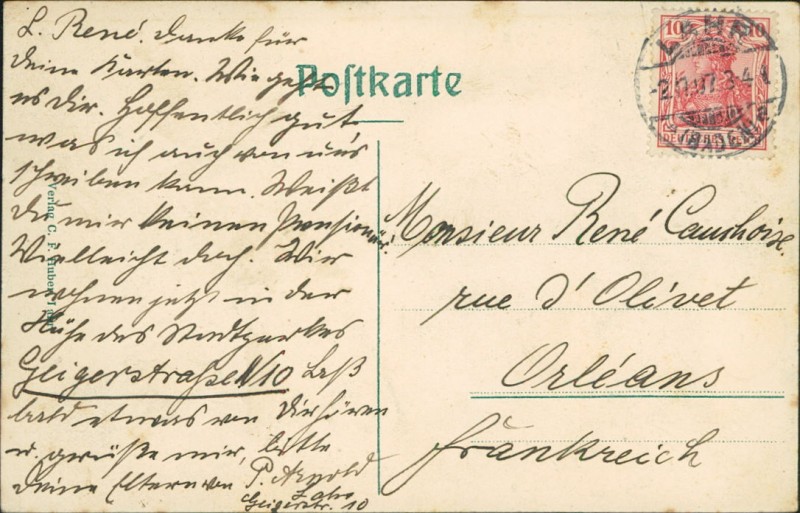 L. René. Danke für
Deine Karten. Wie geht
es dir. Hoffentlich gut
was ich auch von uns
schreiben kann. Weißt
Du mir keinen Pensionär.
Vielleicht doch. Wir
wohnen jetzt in der
Nähe des Stadtparkes
Geigerstraße N 10 Laß
bald etwas von Dir hören
u. grüße mir, bitte
Deine Eltern von P. Arnold
Lahr
Geigerstr. 10
Postkarte
Verlag C. F. Huber, Lahr
10 10
LAHR
(BADEN)
Monsieur René
rue d'Olivet
Orléans
Frankreich